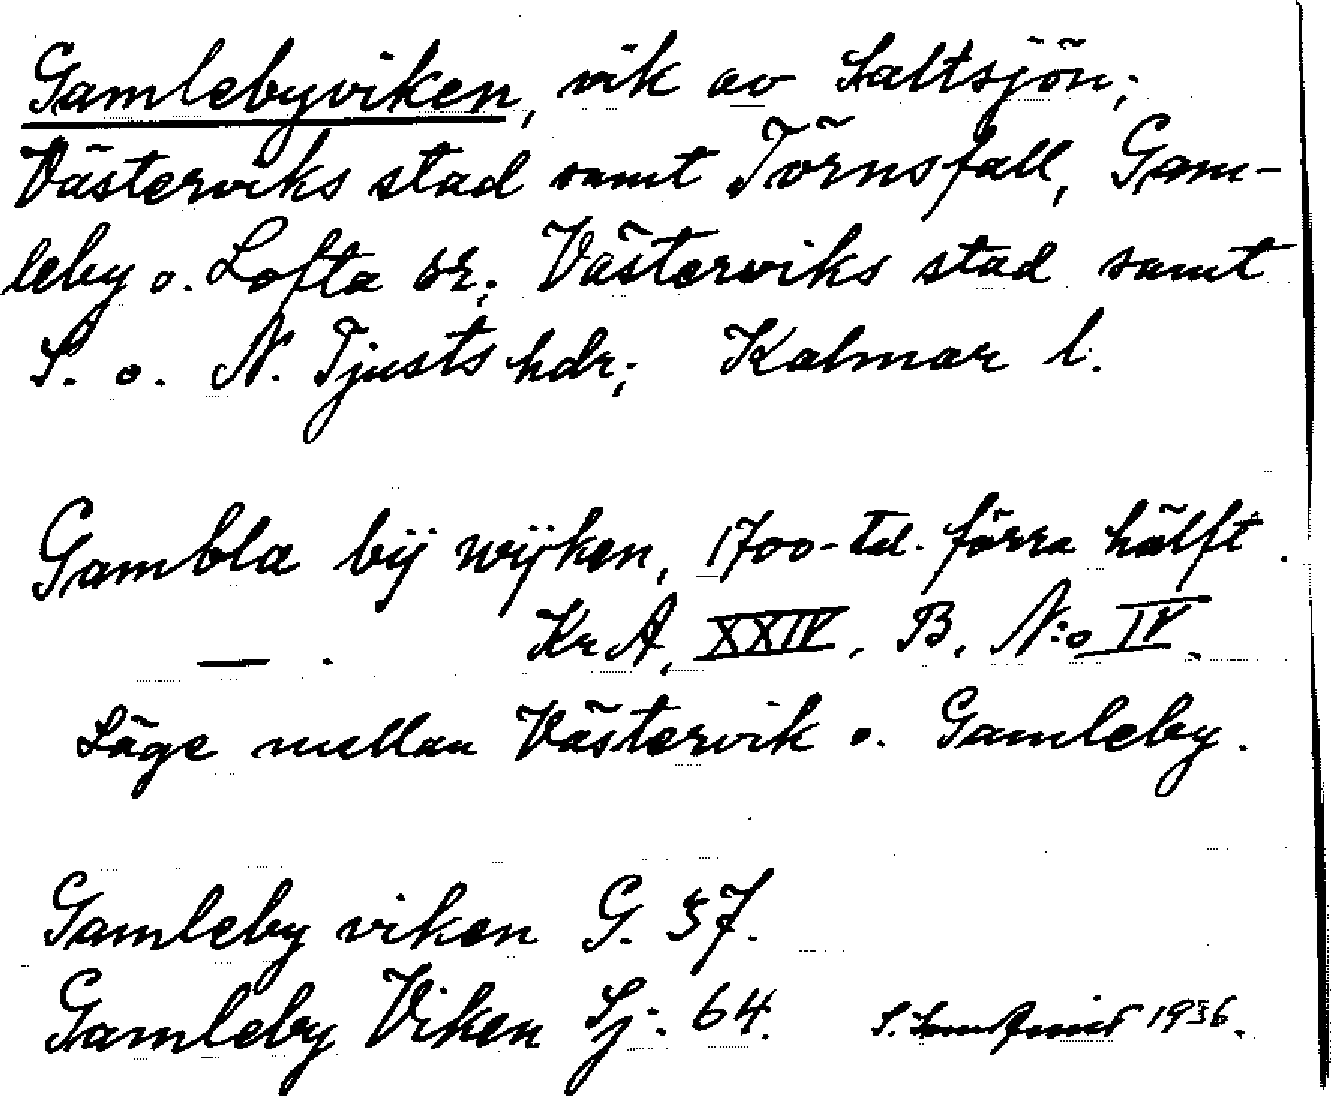 Gamlebyviken, vik av Saltsjön;
Västerviks stad samt Törnsfall, Gam-
leby o. Lofta sr; Västerviks stad samt
S. o. N. Tjusts hdr; Kalmar l.
Gambla bÿ wÿken, 1700-tal. förra hälft.
— . KrA, XXIV, B, N:o IV.
Läge mellan Västervik o. Gamleby.
Gamleby viken G. 57.
Gamleby Viken Sj: 64. S. 1936.